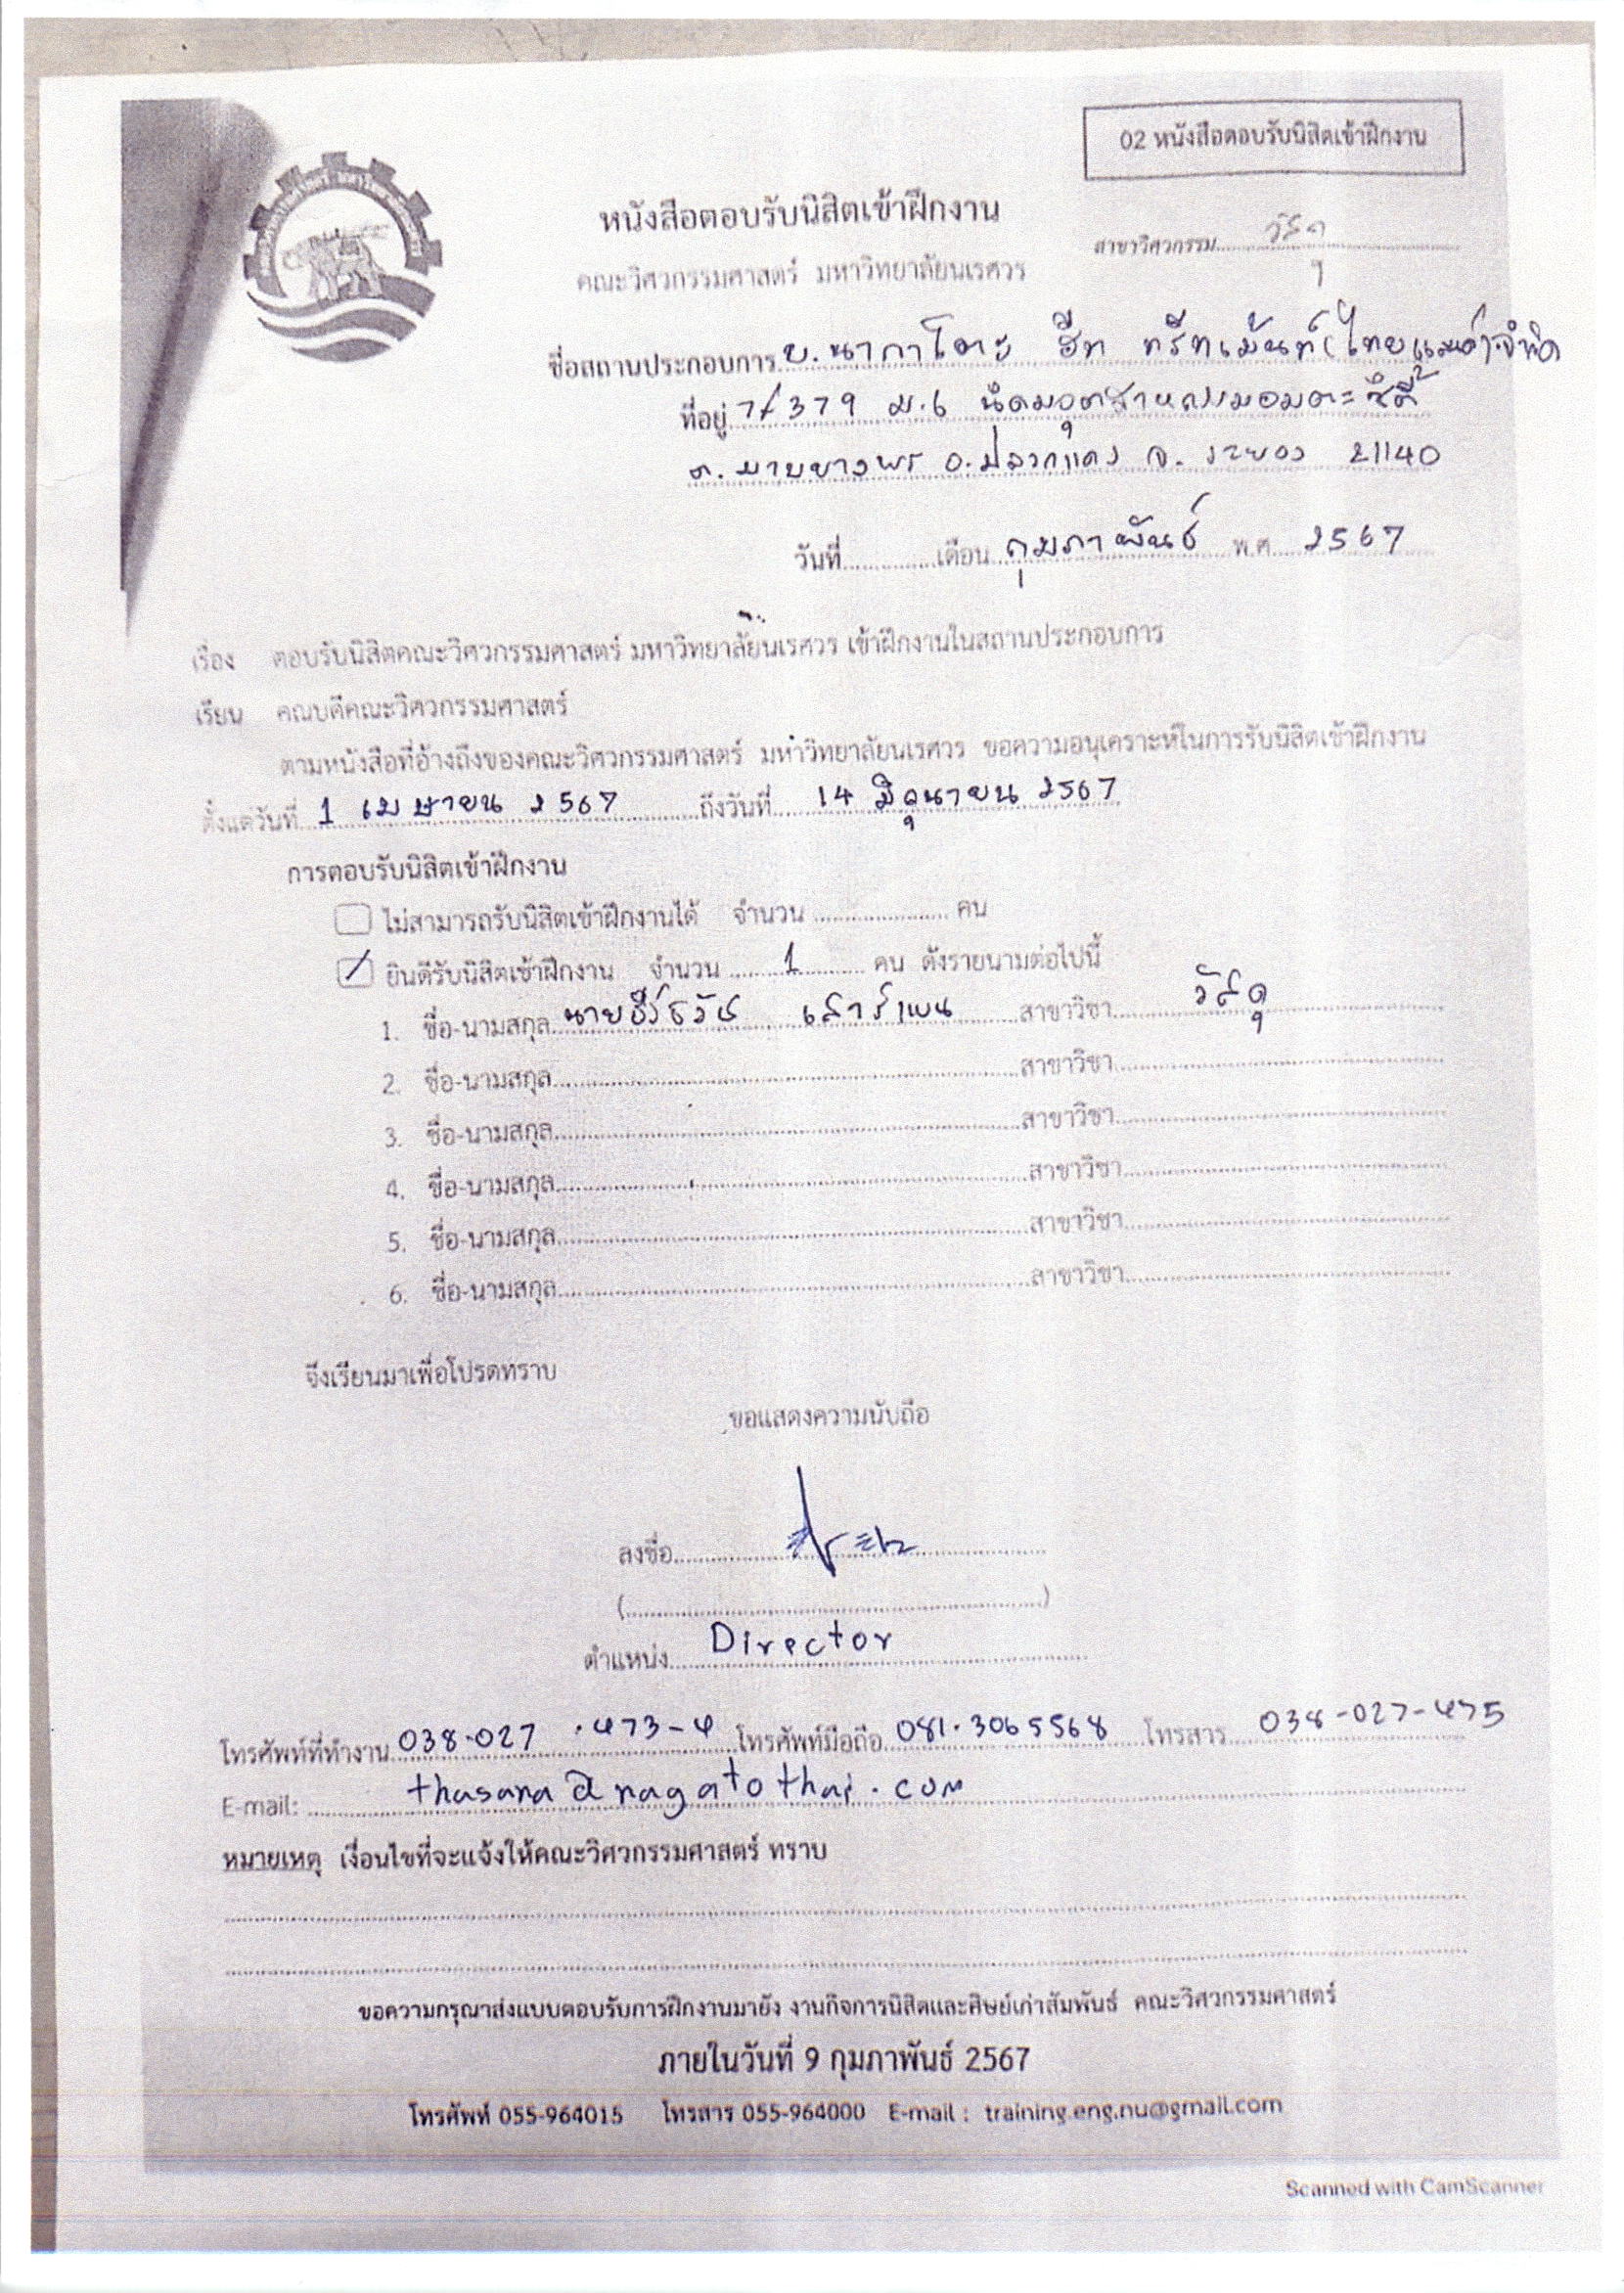 02 หนังสือตอบรับนิสิตเข้าฝึกงาน
หนังสือตอบรับนิสิตเข้าฝึกงาน
สาขาวิศวกรรม วัสดุ
คณะวิศวกรรมศาสตร์ มหาวิทยาลัยนเรศวร
ชื่อสถานประกอบการ บ.นากาโตะ ฮีท ทรีทเม้นท์ (ไทยแลนด์) จำกัด
ที่อยู่ 7/379 ม.6 นิคมอุตสาหกรรมอมตะซิตี้
ต.มาบยางพร อ.ปลวกแดง จ.ระยอง 21140
วันที่ เดือน กุมภาพันธ์ พ.ศ. 2567
เรื่อง ตอบรับนิสิตคณะวิศวกรรมศาสตร์ มหาวิทยาลัยนเรศวร เข้าฝึกงานในสถานประกอบการ
เรียน คณบดีคณะวิศวกรรมศาสตร์
ตามหนังสือที่อ้างถึงของคณะวิศวกรรมศาสตร์ มหาวิทยาลัยนเรศวร ขอความอนุเคราะห์ในการรับนิสิตเข้าฝึกงาน
ตั้งแต่วันที่ 1 เมษายน 2567 ถึงวันที่ 14 มิถุนายน 2567
การตอบรับนิสิตเข้าฝึกงาน
ไม่สามารถรับนิสิตเข้าฝึกงานได้ จำนวน คน
ยินดีรับนิสิตเข้าฝึกงาน จำนวน 1 คน ดังรายนามต่อไปนี้
1. ชื่อ-นามสกุล นายธีร์ธวัช เสาร์แบน สาขาวิชา วัสดุ
2. ชื่อ-นามสกุล สาขาวิชา
3. ชื่อ-นามสกุล สาขาวิชา
4. ชื่อ-นามสกุล สาขาวิชา
5. ชื่อ-นามสกุล สาขาวิชา
6. ชื่อ-นามสกุล สาขาวิชา
จึงเรียนมาเพื่อโปรดทราบ
ขอแสดงความนับถือ
ลงชื่อ
( )
ตำแหน่ง Director
โทรศัพท์ที่ทำงาน 038-027-473-4 โทรศัพท์มือถือ 081-3065568 โทรสาร 038-027-475
E-mail: thasana@nagatothai.com
หมายเหตุ เงื่อนไขที่จะแจ้งให้คณะวิศวกรรมศาสตร์ ทราบ
ขอความกรุณาส่งแบบตอบรับการฝึกงานมายัง งานกิจการนิสิตและศิษย์เก่าสัมพันธ์ คณะวิศวกรรมศาสตร์
ภายในวันที่ 9 กุมภาพันธ์ 2567
โทรศัพท์ 055-964015 โทรสาร 055-964000 E-mail : training.eng.nu@gmail.com
Scanned with CamScanner